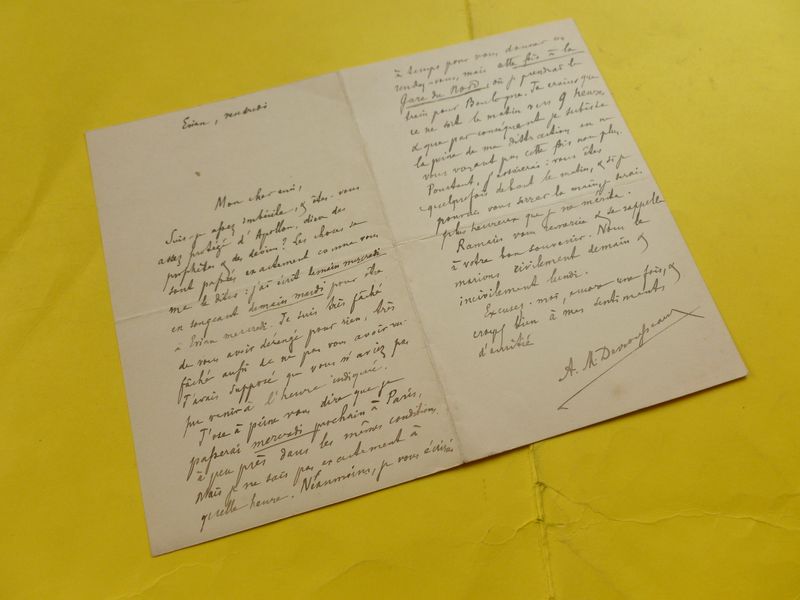 Evian, vendredi
Mon cher ami,
Suis-je assez imbécile, & êtes-vous
assez protégé d'Apollon, dieu des
prophètes & des devins? Les choses se
sont passées exactement comme vous
me le dites: j'ai écrit demain mercredi
en songeant demain mardi pour être
à Evian mercredi. Je suis très fâché
de vous avoir dérangé pour rien, très
fâché aussi de ne pas vous avoir vu.
J'avais supposé que vous n'aviez pas
pu venir à l'heure indiquée.
J'ose à peine vous dire que je
passerai mercredi prochain à Paris,
à peu près dans les mêmes conditions.
Mais je ne sais pas exactement à
quelle heure. Néanmoins, je vous écrirai
à temps pour vous donner un
rendez-vous, mais cette fois à la
Gare du Nord, où je prendrai le
train pour Boulogne. Je crains que
ce ne soit le matin vers 9 heures
& que par conséquent je subisse
la peine de ma distraction en ne
vous voyant pas cette fois non plus.
Pourtant, j'aviserai: vous êtes
quelquefois debout le matin, & si je
pouvais vous serrer la main, je serais
plus heureux que je ne mérite.
Ramain vous remercie & se rappelle
à votre bon souvenir. Nous le
marions civilement demain &
incivilement lundi.
Excusez-moi, encore une fois, &
croyez bien à mes sentiments
d'amitié
A. M. Desrousseaux